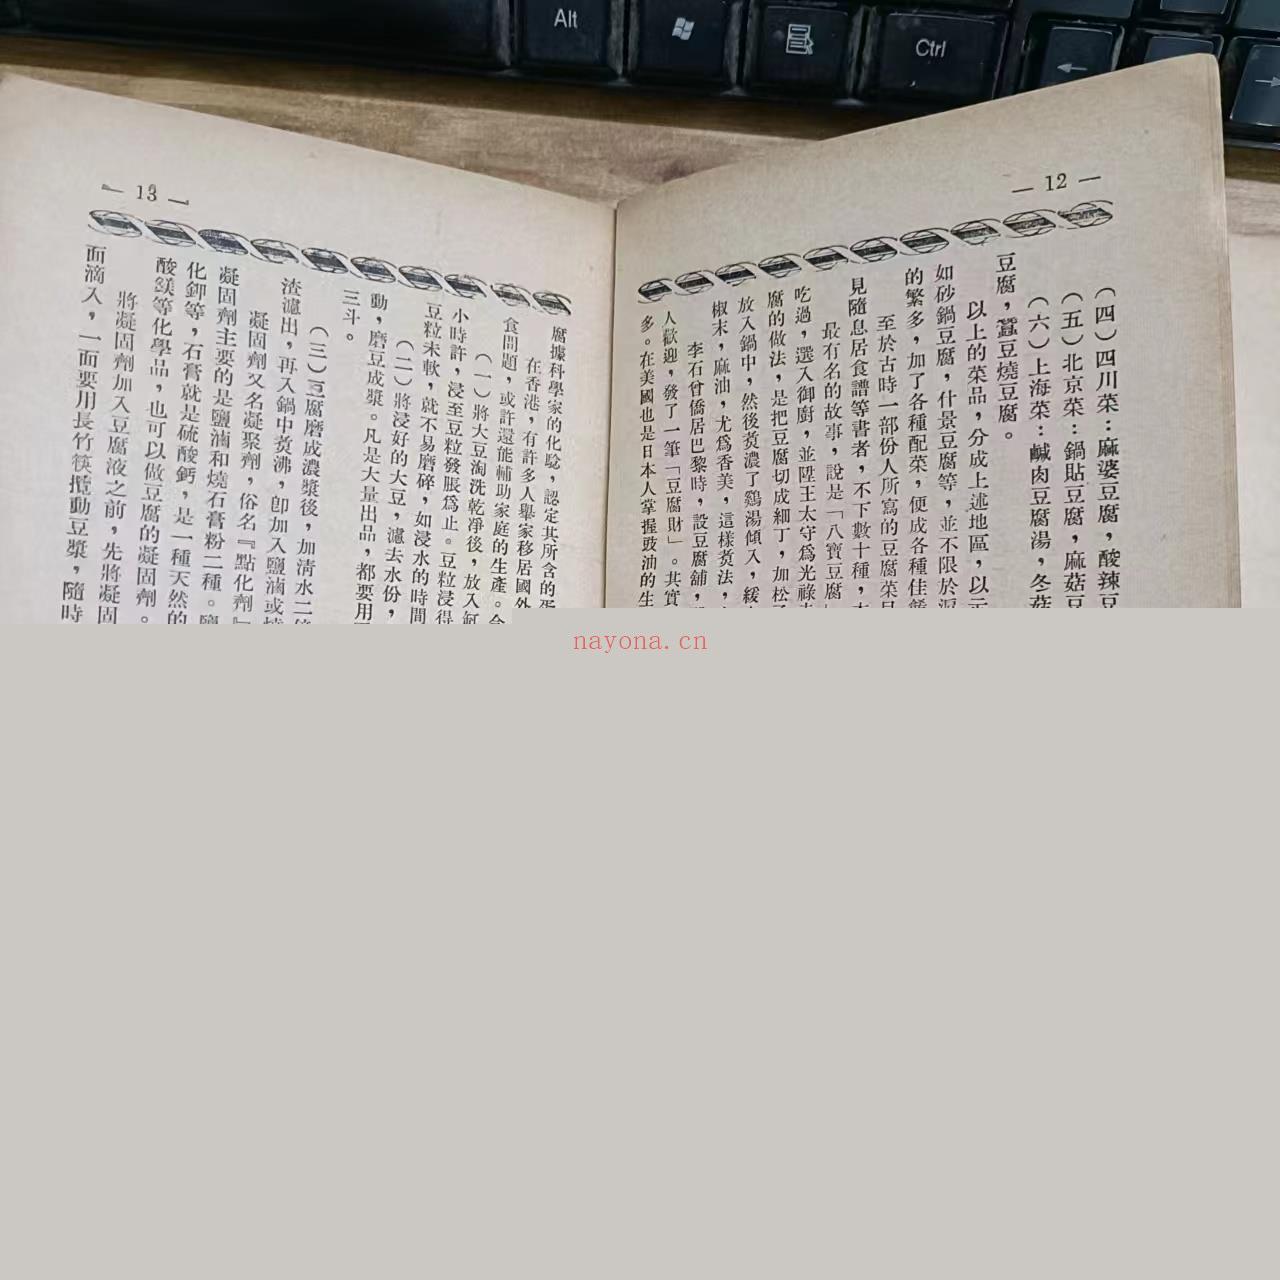 Alt
Ctrl
— 12 —
（四）四川菜：麻婆豆腐，酸辣豆
（五）北京菜：鍋貼豆腐，麻菇豆
（六）上海菜：鹹肉豆腐湯，冬菇
豆腐，蠶豆燒豆腐。
以上的菜品，分成上述地區，以示
如砂鍋豆腐，什景豆腐等，並不限於
的繁多，加了各種配菜，便成各種佳餚
至於古時一部份人所寫的豆腐菜
見隨息居食譜等書者，不下數十種，
最有名的故事，說是「八寶豆腐
吃過，選入御廚，並陞王太守爲光祿
腐的做法，是把豆腐切成細丁，加松
放入鍋中，然後煑濃了鷄湯傾入，緩
椒末，麻油，尤爲香美，這樣煑法，
李石曾僑居巴黎時，設豆腐舖，
人歡迎，發了一筆「豆腐財」。其實
多。在美國也是日本人掌握豉油的生
— 13 —
腐據科學家的化驗，認定其所含的蛋
在香港，有許多人舉家移居國外
食問題，或許還能輔助家庭的生產。
（一）將大豆淘洗乾凈後，放入缸
小時許，浸至豆粒發脹爲止。豆粒浸得
豆粒未軟，就不易磨碎，如浸水的時間
（二）將浸好的大豆，濾去水份，
動，磨豆成漿。凡是大量出品，都要用
三斗。
（三）豆腐磨成濃漿後，加清水二
渣濾出，再入鍋中煑沸，卽加入鹽滷或
凝固劑又名凝聚劑，俗名『點化劑』
凝固劑主要的是鹽滷和燒石膏粉二種。
化鉀等，石膏就是硫酸鈣，是一種天然的
酸鎂等化學品，也可以做豆腐的凝固劑。
將凝固劑加入豆腐液之前，先將凝固
面滴入，一面要用長竹筷攪動豆漿，隨時
nayona.cn